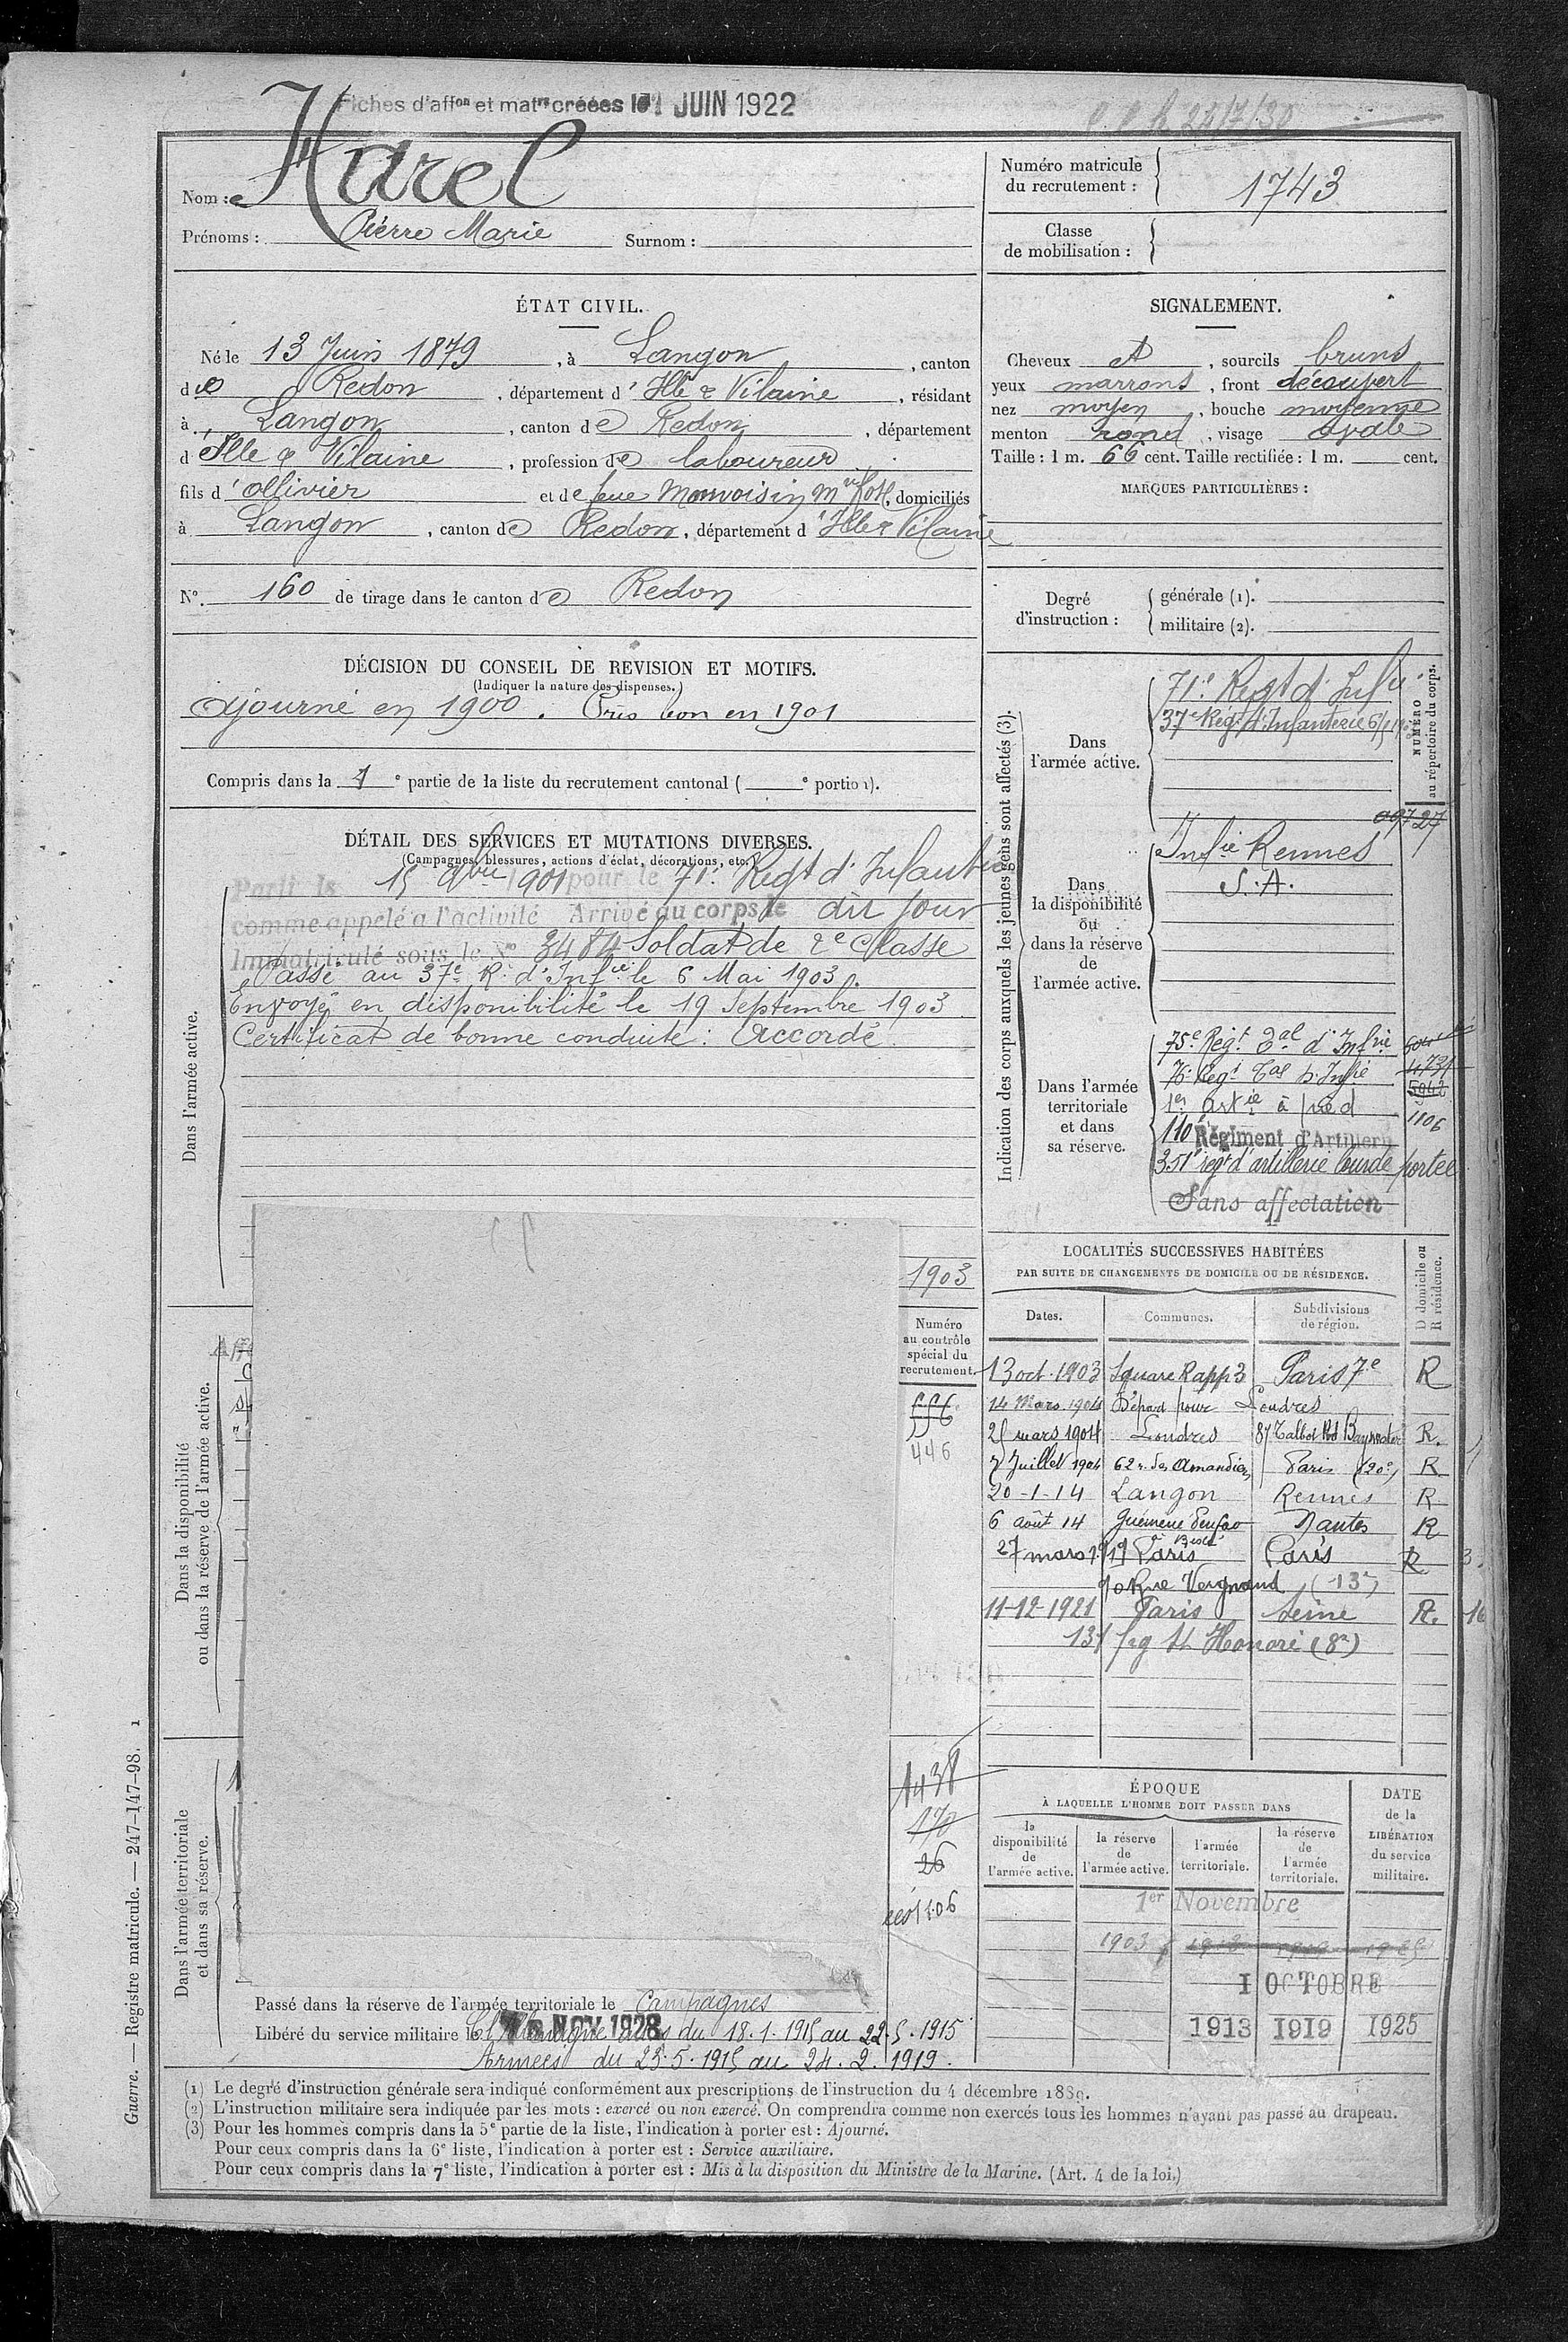 Fiches d'affon et matre créées le 1 JUIN 1922
Nom : Harel
Prénoms : Pierre Marie Surnom :
Numéro matricule du recrutement : 1743
Classe de mobilisation :
ÉTAT CIVIL.
Né le 13 Juin 1879, à Langon, canton
de Redon, département d'Ille & Vilaine, résidant
à Langon, canton de Redon, département
d'Ille & Vilaine, profession de laboureur
fils d'Ollivier et de feue Monvoisin, domiciliés
à Langon, canton de Redon, département d'Ille & Vilaine
N° 160 de tirage dans le canton de Redon
SIGNALEMENT.
Cheveux et, sourcils bruns
yeux marrons, front découvert
nez moyen, bouche moyenne
menton rond, visage ovale
Taille : 1 m. 66 cent. Taille rectifiée : 1 m. cent.
MARQUES PARTICULIÈRES :
Degré d'instruction : générale (1).
militaire (2).
DÉCISION DU CONSEIL DE REVISION ET MOTIFS.
(Indiquer la nature des dispenses.)
Ajourné en 1900. Pris bon en 1901
Compris dans la 1e partie de la liste du recrutement cantonal ( e portion).
DÉTAIL DES SERVICES ET MUTATIONS DIVERSES.
(Campagnes, blessures, actions d'éclat, décorations, etc.)
Dans l'armée active.
Parti le 15 9bre 1901 pour le 71e Regt d'Infanterie
comme appelé à l'activité Arrivé au corps le dit jour
Immatriculé sous le N° 3484 Soldat de 2e Classe
Passé au 37e R. d'Infie le 6 Mai 1903.
Envoyé en disponibilité le 19 Septembre 1903
Certificat de bonne conduite : Accordé
1903
Indication des corps auxquels les jeunes gens sont affectés (3).
NUMÉRO au répertoire du corps.
Dans l'armée active.
71e Regt d'Infie
37e Rég. d'Infanterie
Dans la disponibilité ou dans la réserve de l'armée active.
Infie Rennes
S.A.
09727
Dans l'armée territoriale et dans sa réserve.
75e Régt Tal d'Infie
76e Regt Tal d'Infie 4731
1er Artie à pied 1106
110e Régiment d'Artillerie
351e régt d'artillerie lourde portée
Sans affectation
Dans la disponibilité ou dans la réserve de l'armée active.
Numéro au contrôle spécial du recrutement.
446
LOCALITÉS SUCCESSIVES HABITÉES
PAR SUITE DE CHANGEMENTS DE DOMICILE OU DE RÉSIDENCE.
Dates. Communes. Subdivisions de région. D domicile ou R résidence.
13 oct. 1903 Square Rapp 3 Paris 7e R
14 Mars 1904 Départ pour Londres
25 mars 1904 Londres 87 Talbot Rd Bayswater R.
7 Juillet 1904 62 r. des Amandiers Paris (20e) R
20-1-14 Langon Rennes R
6 août 14 Guémené Penfao Nantes R
27 mars 1919 Paris Paris R 3
90 Rue Vergniaud (13e)
11-12-1921 Paris Seine R. 16
131 fbg St Honoré (8e)
Dans l'armée territoriale et dans sa réserve.
1438
170
26
1106
ÉPOQUE
À LAQUELLE L'HOMME DOIT PASSER DANS
la disponibilité de l'armée active.
la réserve de l'armée active.
l'armée territoriale.
la réserve de l'armée territoriale.
DATE de la LIBÉRATION du service militaire.
1er Novembre
1903 1913 1919 1925
1 OCTOBRE
1913 1919 1925
Passé dans la réserve de l'armée territoriale le Campagnes
Libéré du service militaire le NOV 1928 C/ Allemagne du 18.1.1915 au 22.5.1915
Armées du 23.5.1915 au 24.2.1919.
(1) Le degré d'instruction générale sera indiqué conformément aux prescriptions de l'instruction du 4 décembre 1889.
(2) L'instruction militaire sera indiquée par les mots : exercé ou non exercé. On comprendra comme non exercés tous les hommes n'ayant pas passé au drapeau.
(3) Pour les hommes compris dans la 5e partie de la liste, l'indication à porter est : Ajourné.
Pour ceux compris dans la 6e liste, l'indication à porter est : Service auxiliaire.
Pour ceux compris dans la 7e liste, l'indication à porter est : Mis à la disposition du Ministre de la Marine. (Art. 4 de la loi.)
Guerre. — Registre matricule. — 247-147-98. 1